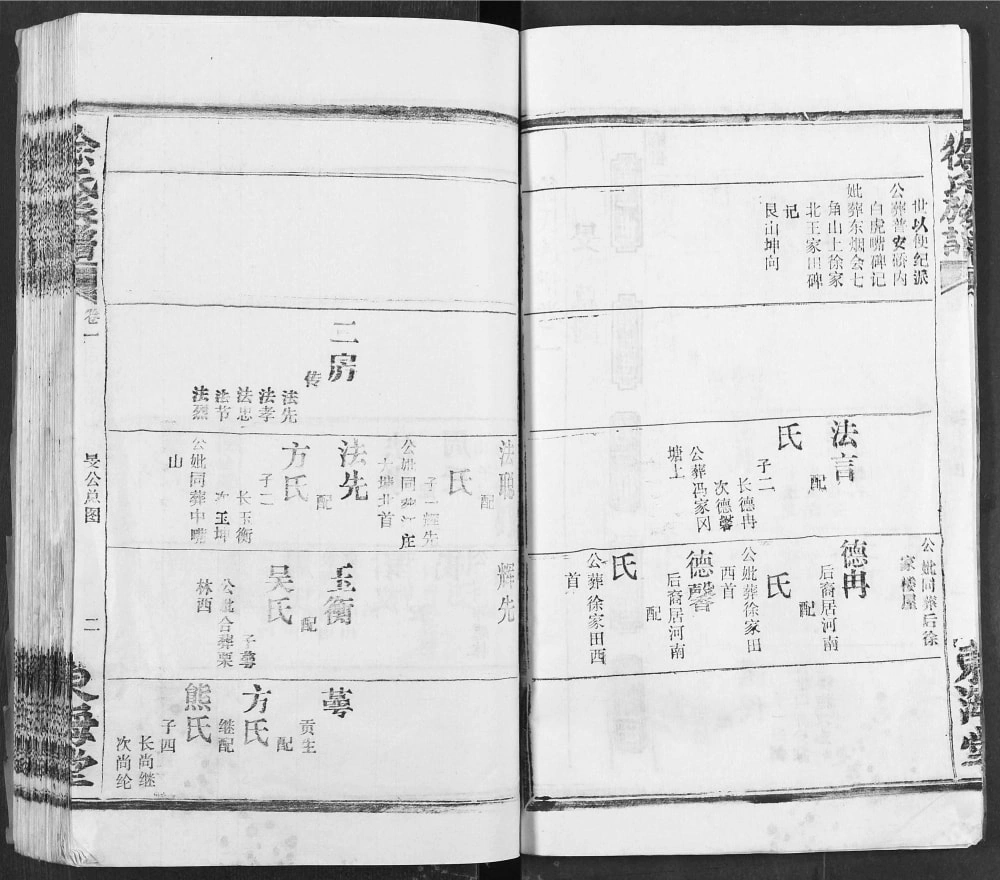 徐氏族谱
世以便纪派
公葬普安桥内
白虎嘴碑记
妣葬东烟会七
角山上徐家
北王家田碑
记
艮山坤向
法言
配
氏
子二
长德冉
次德馨
公葬冯家冈
塘上
公妣同葬后徐
家楼屋
德冉
后裔居河南
配
氏
公妣葬徐家田
西首
德馨
后裔居河南
配
氏
公葬徐家田西
首
东海堂
三房
传
法先
法孝
法忠
法节
法烈
法聪
配
氏
子一辉先
公妣同葬
庄
塘北首
法先
配
方氏
子二
长玉衡
次玉坤
公妣同葬中嘴
山
辉先
玉衡
配
吴氏
子萼
公妣合葬栗
林西
萼
贡生
配
方氏
继配
熊氏
子四
长尚继
次尚纶
徐氏族谱
卷一
旻公总图
二
东海堂